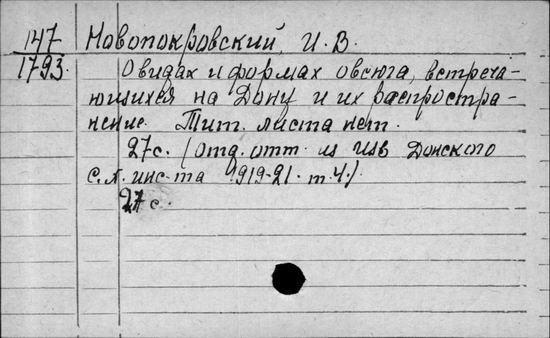 147 Новопокровский, И. В.
1793. О видах и формах овсюга, встреча-
ющихся на Дону и их распростра-
нение. Тит. листа нет.
27 с. (Отд. отт. из Изв Донского
с.х. инс-та 1919-21. т. 4.)
27 с.